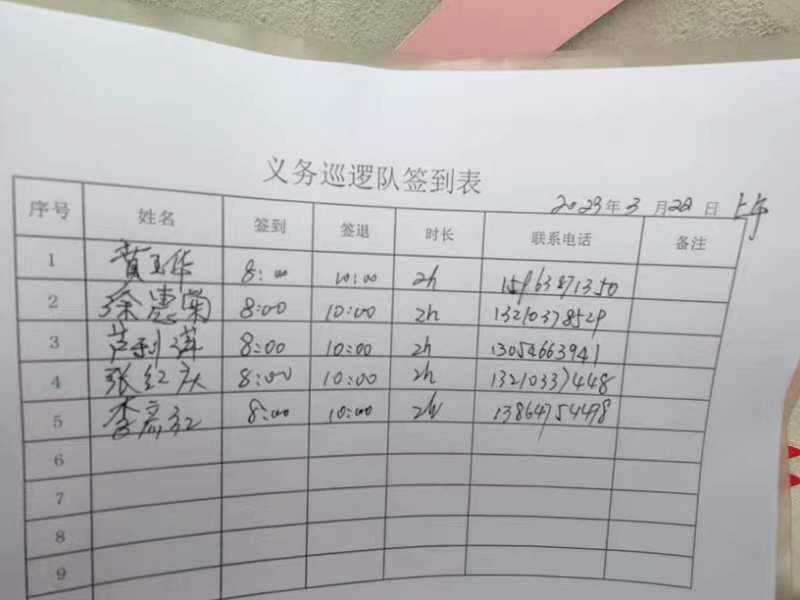 义务巡逻队签到表
2023年3月22日 上午
序号 姓名 签到 签退 时长 联系电话 备注
1 黄玉华 8:00 10:00 2h
2 徐惠菊 8:00 10:00 2h 13210378529
3 芦利莲 8:00 10:00 2h 13054663941
4 张红庆 8:00 10:00 2h 13210337448
5 李彦红 8:00 10:00 2h 13864754498
6
7
8
9